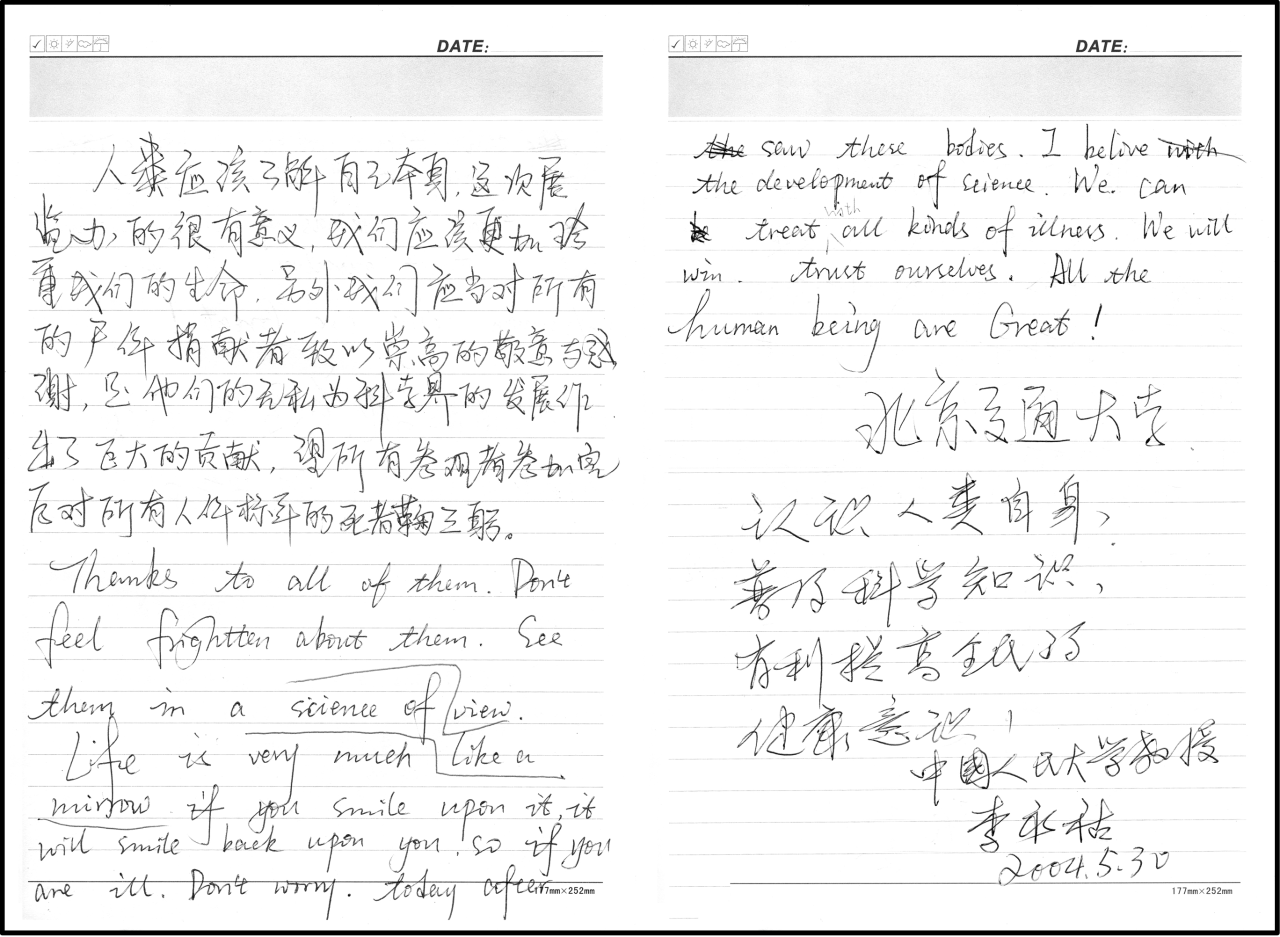 DATE:
人类应该了解自己本身,这次展
览办的很有意义,我们应该更加珍
重我们的生命,另外我们应当对所有
的尸体捐献者致以崇高的敬意与感
谢,是他们的无私为科学界的发展作
出了巨大的贡献,望所有参观者参加完
后对所有人体标本的死者鞠三躬。
Thanks to all of them. Don't
feel frightten about them. See
them in a science of view.
Life is very much like a
mirrow if you smile upon it, it
will smile back upon you. so if you
are ill. Don't worry. today after
177mm×252mm
DATE:
the saw these bodies. I belive with
the development of science. We. can
be treat with all kinds of illness. We will
win. trust ourselves. All the
human being are Great!
北京交通大学.
认识人类自身,
普及科学知识,
有利提高全民的
健康意识!
中国人民大学教授
李永祜
2004.5.30
177mm×252mm